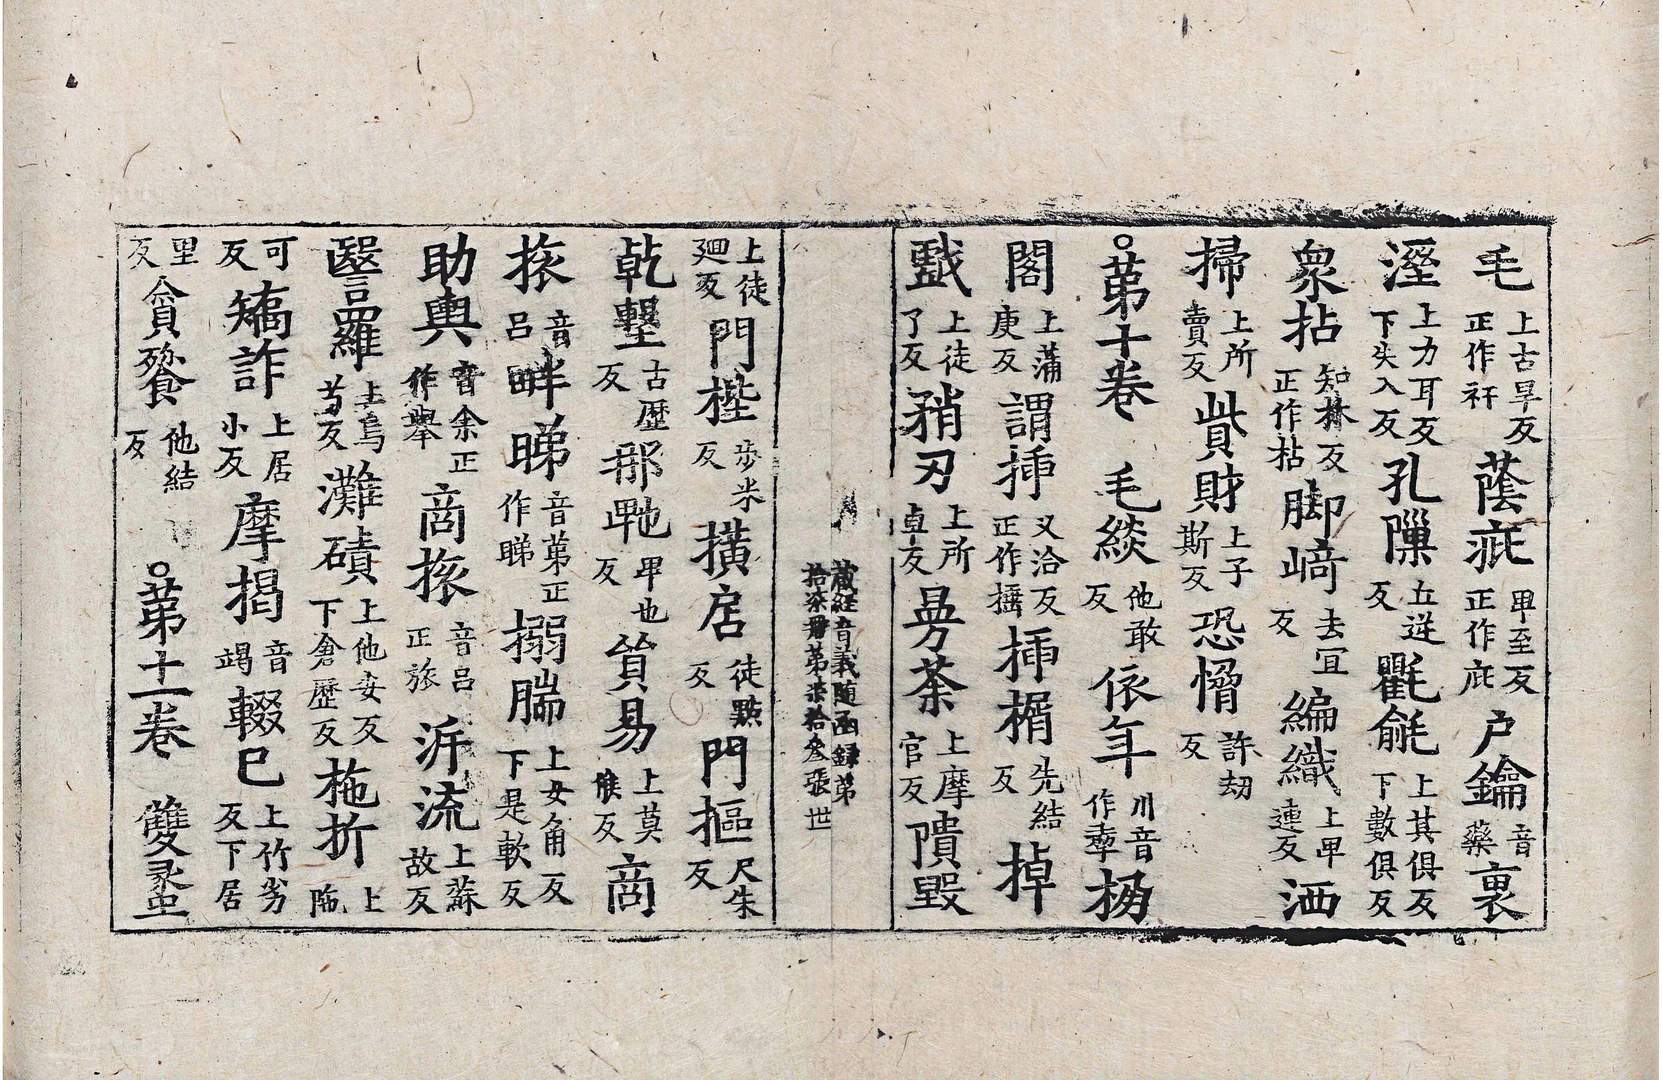 毛上古旱反正作秆蔭疪卑至反正作庇户鑰音藥裏
溼上力耳反下失入反孔隟丘逆反氍毹上其俱反下數俱反
衆拈知林反正作枮脚﨑去冝反編織上卑連反洒
掃上所賣反貲財上子斯反恐愶許刧反
○苐十卷　毛緂他敢反依年川音作牽㭿
閣上蒲庚反謂揷义洽反正作擂揷楈先結反掉
戲上徒了反矟刃上所卓反昮荼上摩官反隤毀
藏経音義随函録第
拾柒册第柒拾叁張　世
上徒廻反門梐步米反擴扂徒㸃反門摳尺朱反
乾墼古歷反那𭺗卑也反貿易上莫候反商
挔音呂畔睇音苐正作睇搦腨上女角反下是軟反
助輿音余正作舉商挔音呂正旅泝流上蘇故反
毉羅上烏兮反灘磧上他安反下倉歷反柂折上陁
可反矯詐上居小反摩揭音竭輟巳上竹劣反下居
里反貪餮他結反　○苐十一卷　雙